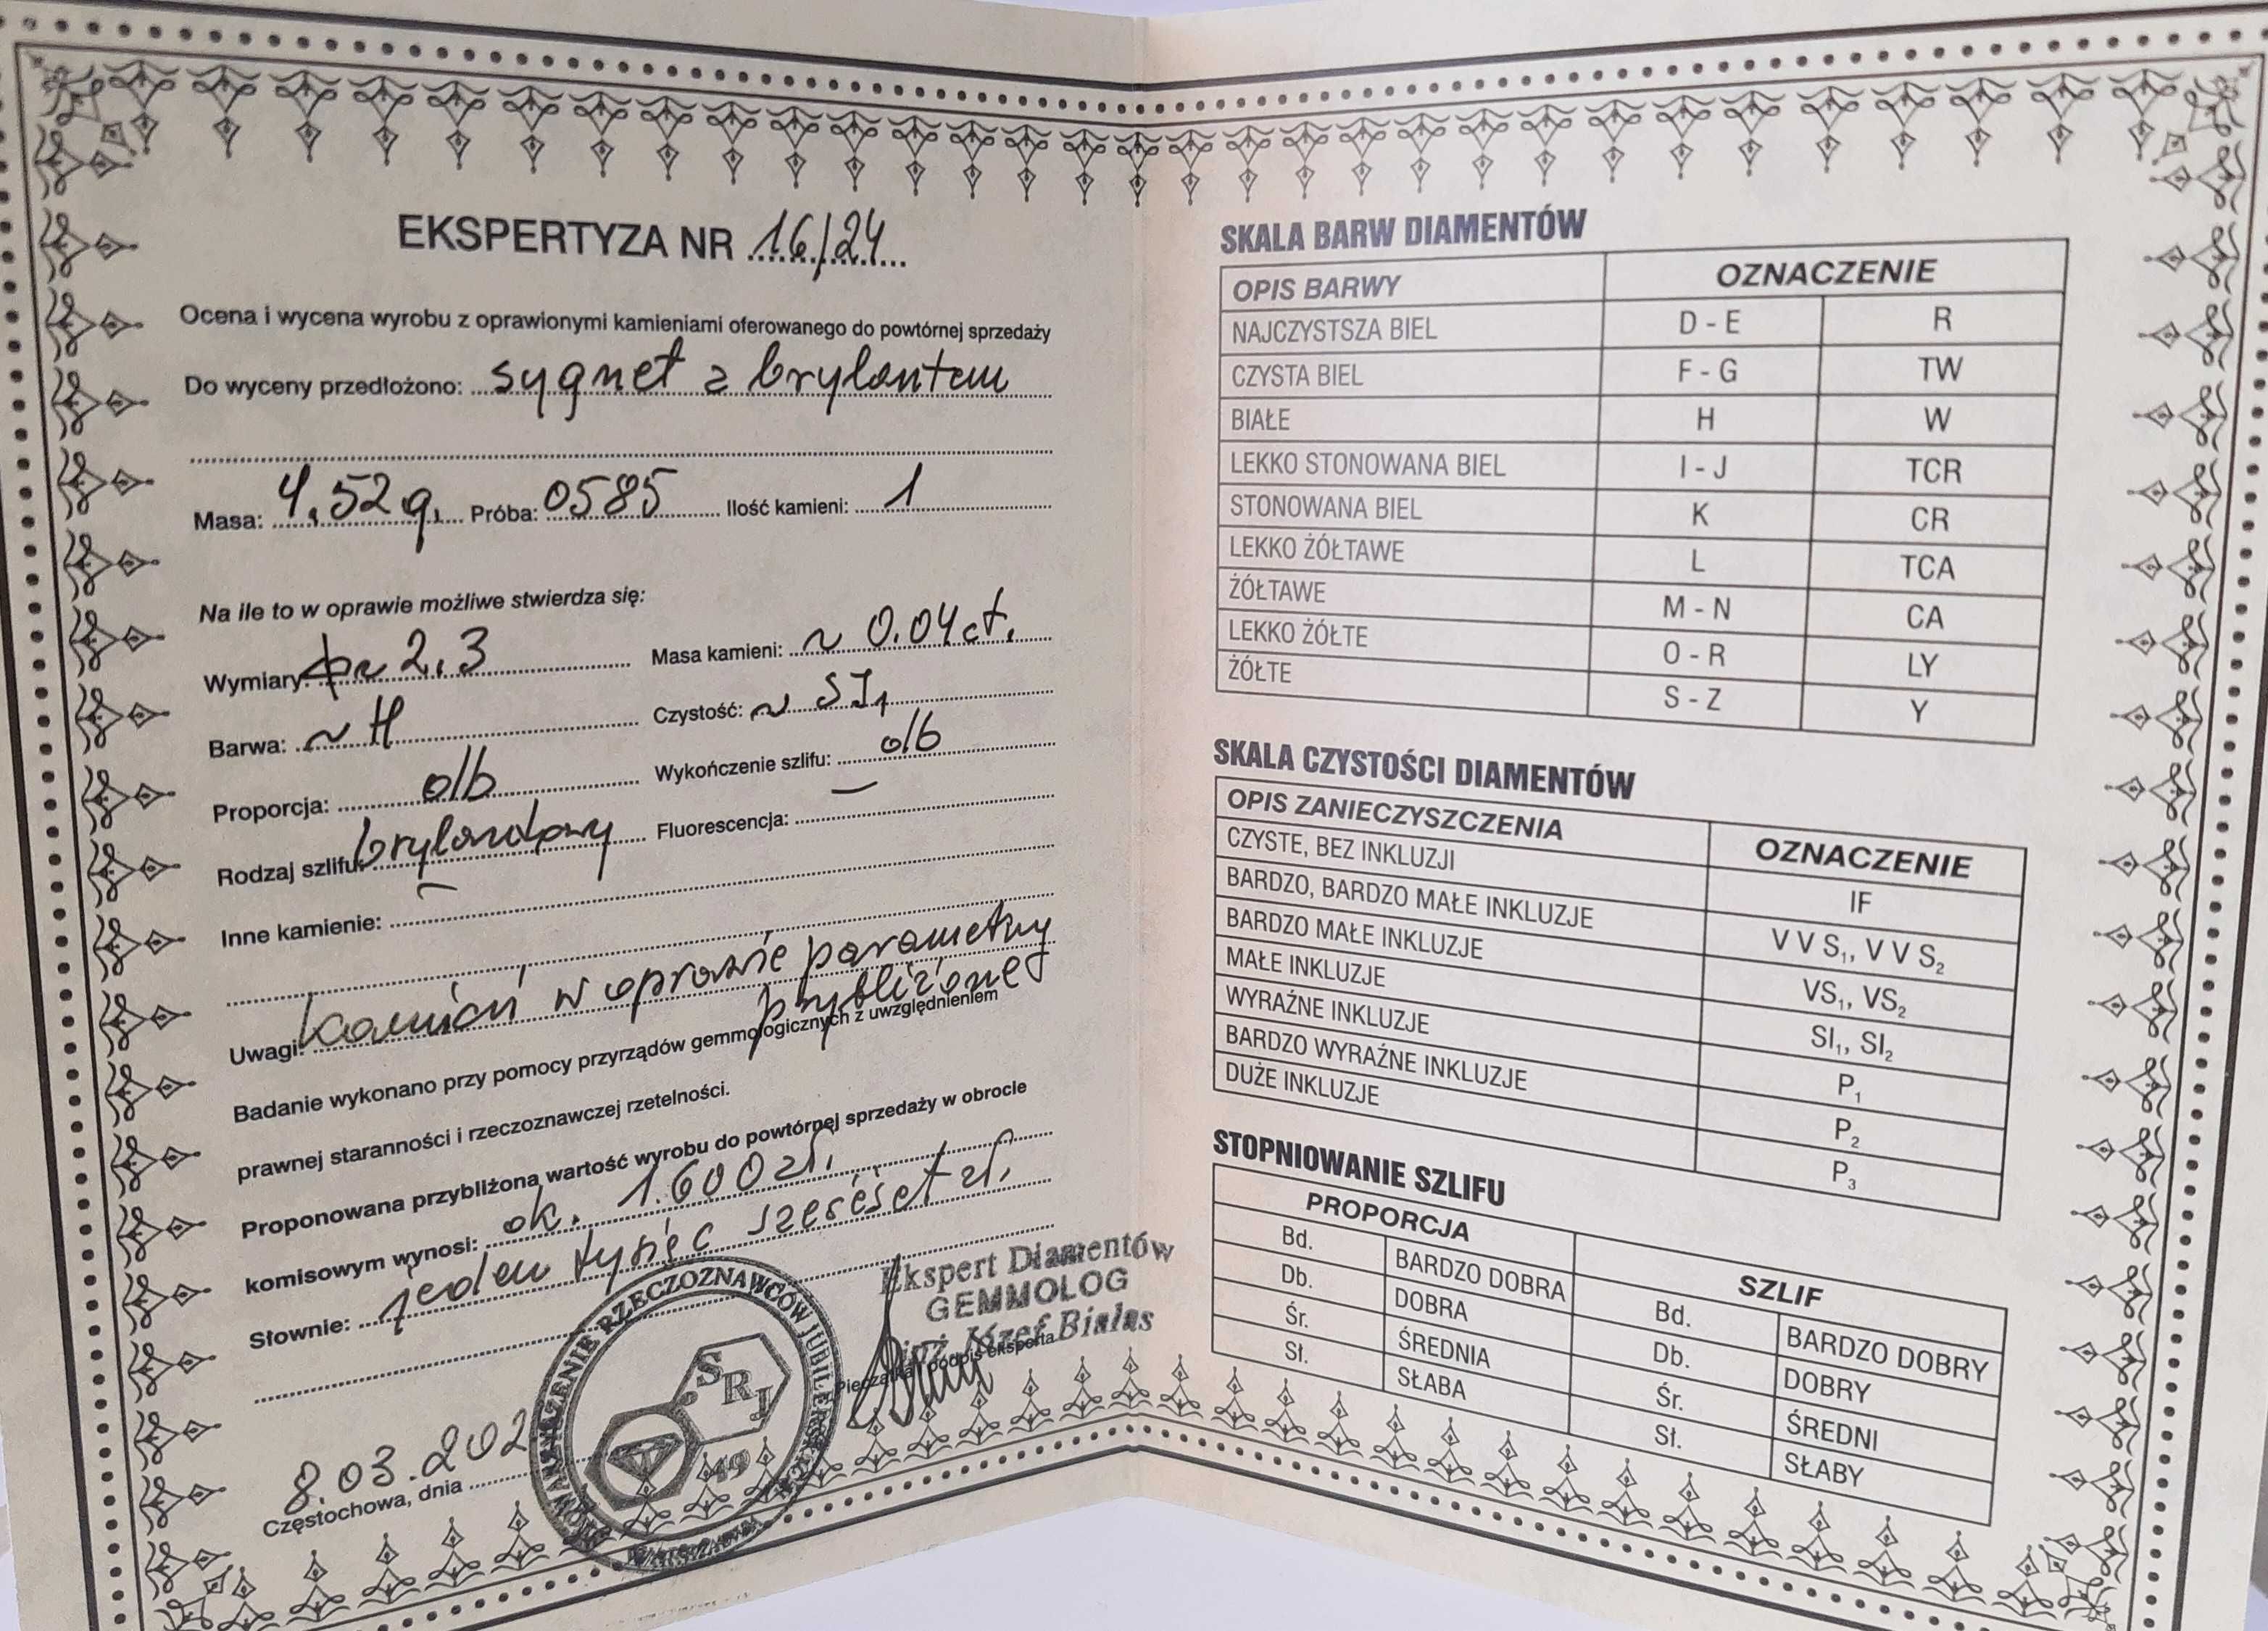 EKSPERTYZA NR 16/24
Ocena i wycena wyrobu z oprawionymi kamieniami oferowanego do powtórnej sprzedaży
Do wyceny przedłożono: sygnet z brylantem
Masa: 4.52 g. Próba: 0585 Ilość kamieni: 1
Na ile to w oprawie możliwe stwierdza się:
Wymiary: ϕ~ 2.3 Masa kamieni: ~ 0.04 ct.
Barwa: ~ H Czystość: ~ SI₁
Proporcja: db Wykończenie szlifu: db
Rodzaj szlifu: brylantowy Fluorescencja: —
Inne kamienie: —
Uwagi: kamień w oprawie parametry
przybliżone
Badanie wykonano przy pomocy przyrządów gemmologicznych z uwzględnieniem
prawnej staranności i rzeczoznawczej rzetelności.
Proponowana przybliżona wartość wyrobu do powtórnej sprzedaży w obrocie
komisowym wynosi: ok. 1.600 zł.
Słownie: jeden tysięc sześćset zł.
Ekspert Diamentów
GEMMOLOG
inż. Józef Białas
Pieczątka i podpis eksperta
STOWARZYSZENIE RZECZOZNAWCÓW JUBILERSKICH
SRJ
49
8.03.202
Częstochowa, dnia
SKALA BARW DIAMENTÓW
OPIS BARWY OZNACZENIE
NAJCZYSTSZA BIEL D - E R
CZYSTA BIEL F - G TW
BIAŁE H W
LEKKO STONOWANA BIEL I - J TCR
STONOWANA BIEL K CR
LEKKO ŻÓŁTAWE L TCA
ŻÓŁTAWE M - N CA
LEKKO ŻÓŁTE O - R LY
ŻÓŁTE S - Z Y
SKALA CZYSTOŚCI DIAMENTÓW
OPIS ZANIECZYSZCZENIA OZNACZENIE
CZYSTE, BEZ INKLUZJI IF
BARDZO, BARDZO MAŁE INKLUZJE V V S₁, V V S₂
BARDZO MAŁE INKLUZJE VS₁, VS₂
MAŁE INKLUZJE SI₁, SI₂
WYRAŹNE INKLUZJE P₁
BARDZO WYRAŹNE INKLUZJE P₂
DUŻE INKLUZJE P₃
STOPNIOWANIE SZLIFU
PROPORCJA SZLIF
Bd. BARDZO DOBRA Bd. BARDZO DOBRY
Db. DOBRA Db. DOBRY
Śr. ŚREDNIA Śr. ŚREDNI
Sł. SŁABA Sł. SŁABY